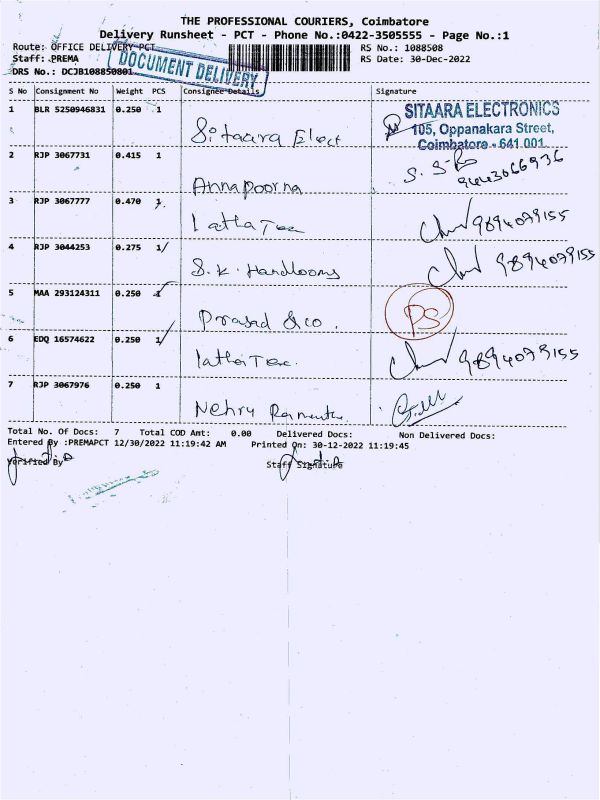 THE PROFESSIONAL COURIERS, Coimbatore
Delivery Runsheet - PCT - Phone No.:0422-3505555 - Page No.:1
Route: OFFICE DELIVERY PCT
RS No.: 1088508
Staff: PREMA
RS Date: 30-Dec-2022
DOCUMENT DELIVERY
DRS No.: DCJB108850801
S No Consignment No Weight PCS Consignee Details Signature
1 BLR 5250946831 0.250 1 Sitaara Elect
SITAARA ELECTRONICS
105, Oppanakara Street,
Coimbatore - 641 001
2 RJP 3067731 0.415 1 Annapoorna 9443066936
3 RJP 3067777 0.470 1 Latha Tex 9894079155
4 RJP 3044253 0.275 1 S.K. Handlooms 9894079155
5 MAA 293124311 0.250 1 Prasad & co. PS
6 EDQ 16574622 0.250 1 Latha Tex. 9894079155
7 RJP 3067976 0.250 1 Nehru
Total No. Of Docs: 7 Total COD Amt: 0.00 Delivered Docs: Non Delivered Docs:
Entered By :PREMAPCT 12/30/2022 11:19:42 AM Printed On: 30-12-2022 11:19:45
Verified By Staff Signature